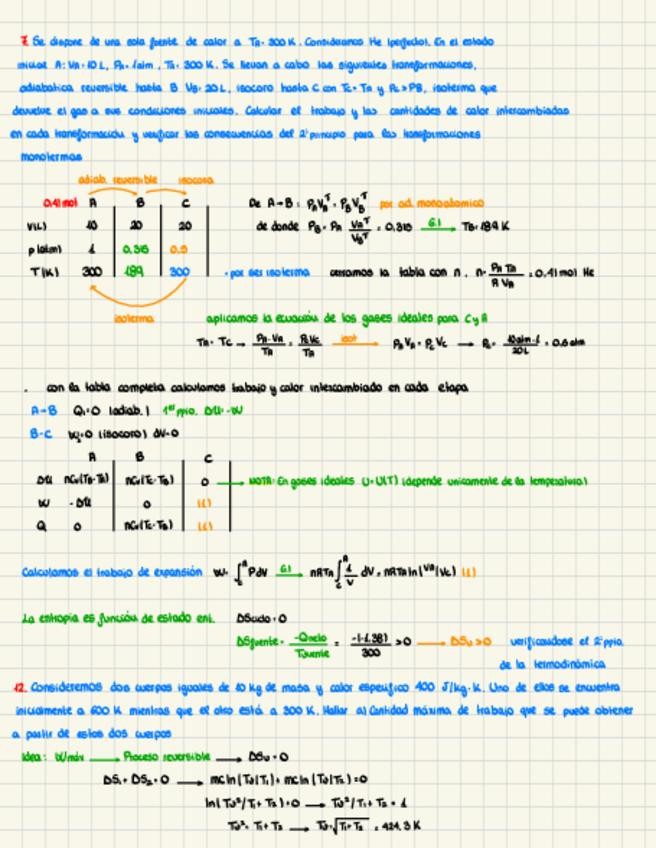 7. Se dispone de una sola fuente de calor a TA= 300 K. Consideramos He (perfecto). En el estado
inicial A: VA=10 L, PA= 1atm, TA= 300 K. Se llevan a cabo las siguientes transformaciones,
adiabatica reversible hasta B VB= 20 L, isocoro hasta C con Tc= TA y Pc>PB, isoterma que
devuelve el gas a sus condiciones iniciales. Calcular el trabajo y las cantidades de calor intercambiadas
en cada transformación y verificar las consecuencias del 2º principio para las transformaciones
monotermas
adiab. reversible isocora
0.41 mol A B C De A→B: PAVA^γ = PBVB^γ por ad. monoatomico
V(L) 10 20 20 de donde PB= PA VA^γ/VB^γ = 0,315 G.I → TB=189 K
p(atm) 1 0,315 0,5
T(K) 300 189 300 · por ser isoterma cerramos la tabla con n. n= PA TA / R VA = 0,41 mol He
isoterma aplicamos la ecuación de los gases ideales para C y A
TA= Tc → PA·VA/TA = PcVc/TA isot → PAVA= PcVc → Pc= 10atm·L/20L = 0.5 atm
. con la tabla completa calculamos trabajo y calor intercambiado en cada etapa
A-B Q1=0 (adiab.) 1er ppio. DU=-W
B-C W2=0 (isocoro) dV=0
A B C
DU nCv(TB-TA) nCv(Tc-TB) 0 → NOTA: En gases ideales U=U(T) (depende unicamente de la temperatura)
W -DU 0 (1)
Q 0 nCv(Tc-TB) (1)
Calculamos el trabajo de expansión W= ∫PdV G.I → nRTA ∫ 1/V dV = nRTA ln(VA/Vc) (1)
La entropia es función de estado ent. DSciclo=0
DSfuente= -Qneto/Tfuente = -(-1.38)/300 >0 → DSu>0 verificandose el 2º ppio.
de la termodinámica
12. Consideremos dos cuerpos iguales de 10 kg de masa y calor especifico 400 J/kg·K. Uno de ellos se encuentra
inicialmente a 600 K mientras que el otro está a 300 K. Hallar a) Cantidad máxima de trabajo que se puede obtener
a partir de estos dos cuerpos
Idea: Wmáx → Proceso reversible → DSu=0
DS1+DS2=0 → mcln(Tf/T1)+mcln(Tf/T2)=0
ln(Tf²/T1·T2)=0 → Tf²/T1·T2 = 1
Tf²= T1·T2 → Tf=√T1·T2 = 424.3 K